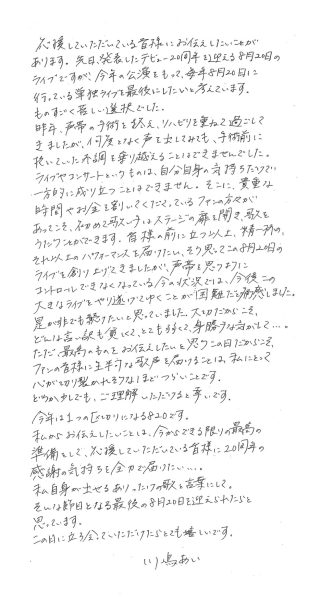 応援していただいている皆様にお伝えしたいことが
あります。先日、発表したデビュー20周年を迎える8月20日の
ライブですが、今年の公演をもって、毎年8月20日に
行っている単独ライブを最後にしたいと考えています。
ものすごく苦しい選択でした。
昨年、声帯の手術を終え、リハビリを重ねて過ごして
きましたが、何度となく声を出してみても、手術前に
抱いていた不調を乗り越えることはできませんでした。
ライブやコンサートというものは、自分自身の気持ちだけで
一方的に成り立つことはできません。そこに、貴重な
時間やお金を割いてくださっているファンの方々が
あってこそ、初めて歌い手はステージの扉を開き、歌を
うたうことができます。皆様の前に立つ以上、精一杯の、
それ以上のパフォーマンスを届けたい、そう思ってこの8月20日の
ライブを創り上げてきましたが、声帯を思うように
コントロールできなくなっている今の状況では、今後この
大きなライブをやり遂げてゆくことが困難だと痛感しました。
是が非でも続けたいと思っていました。大切だからこそ、
どんな言い訳も悔しくて、とても弱くて、身勝手な気がして…。
ただ、最高のものをお伝えしたいと思うこの日だからこそ、
ファンの皆様に半端な歌声を届けることは、私にとって
心がはり裂かれそうなほどつらいことです。
どうか少しでも、ご理解いただけると幸いです。
今年は1つの区切りになる820です。
私からお伝えしたいことは、今からできる限りの最高の
準備をして、応援していただいている皆様に20周年の
感謝の気持ちを全力で届けたい…。
私自身が出せるありったけの歌と言葉にして、
そんな節目となる最後の8月20日を迎えられたらと
思っています。
この日に立ち会っていただけたらとても嬉しいです。
川嶋あい